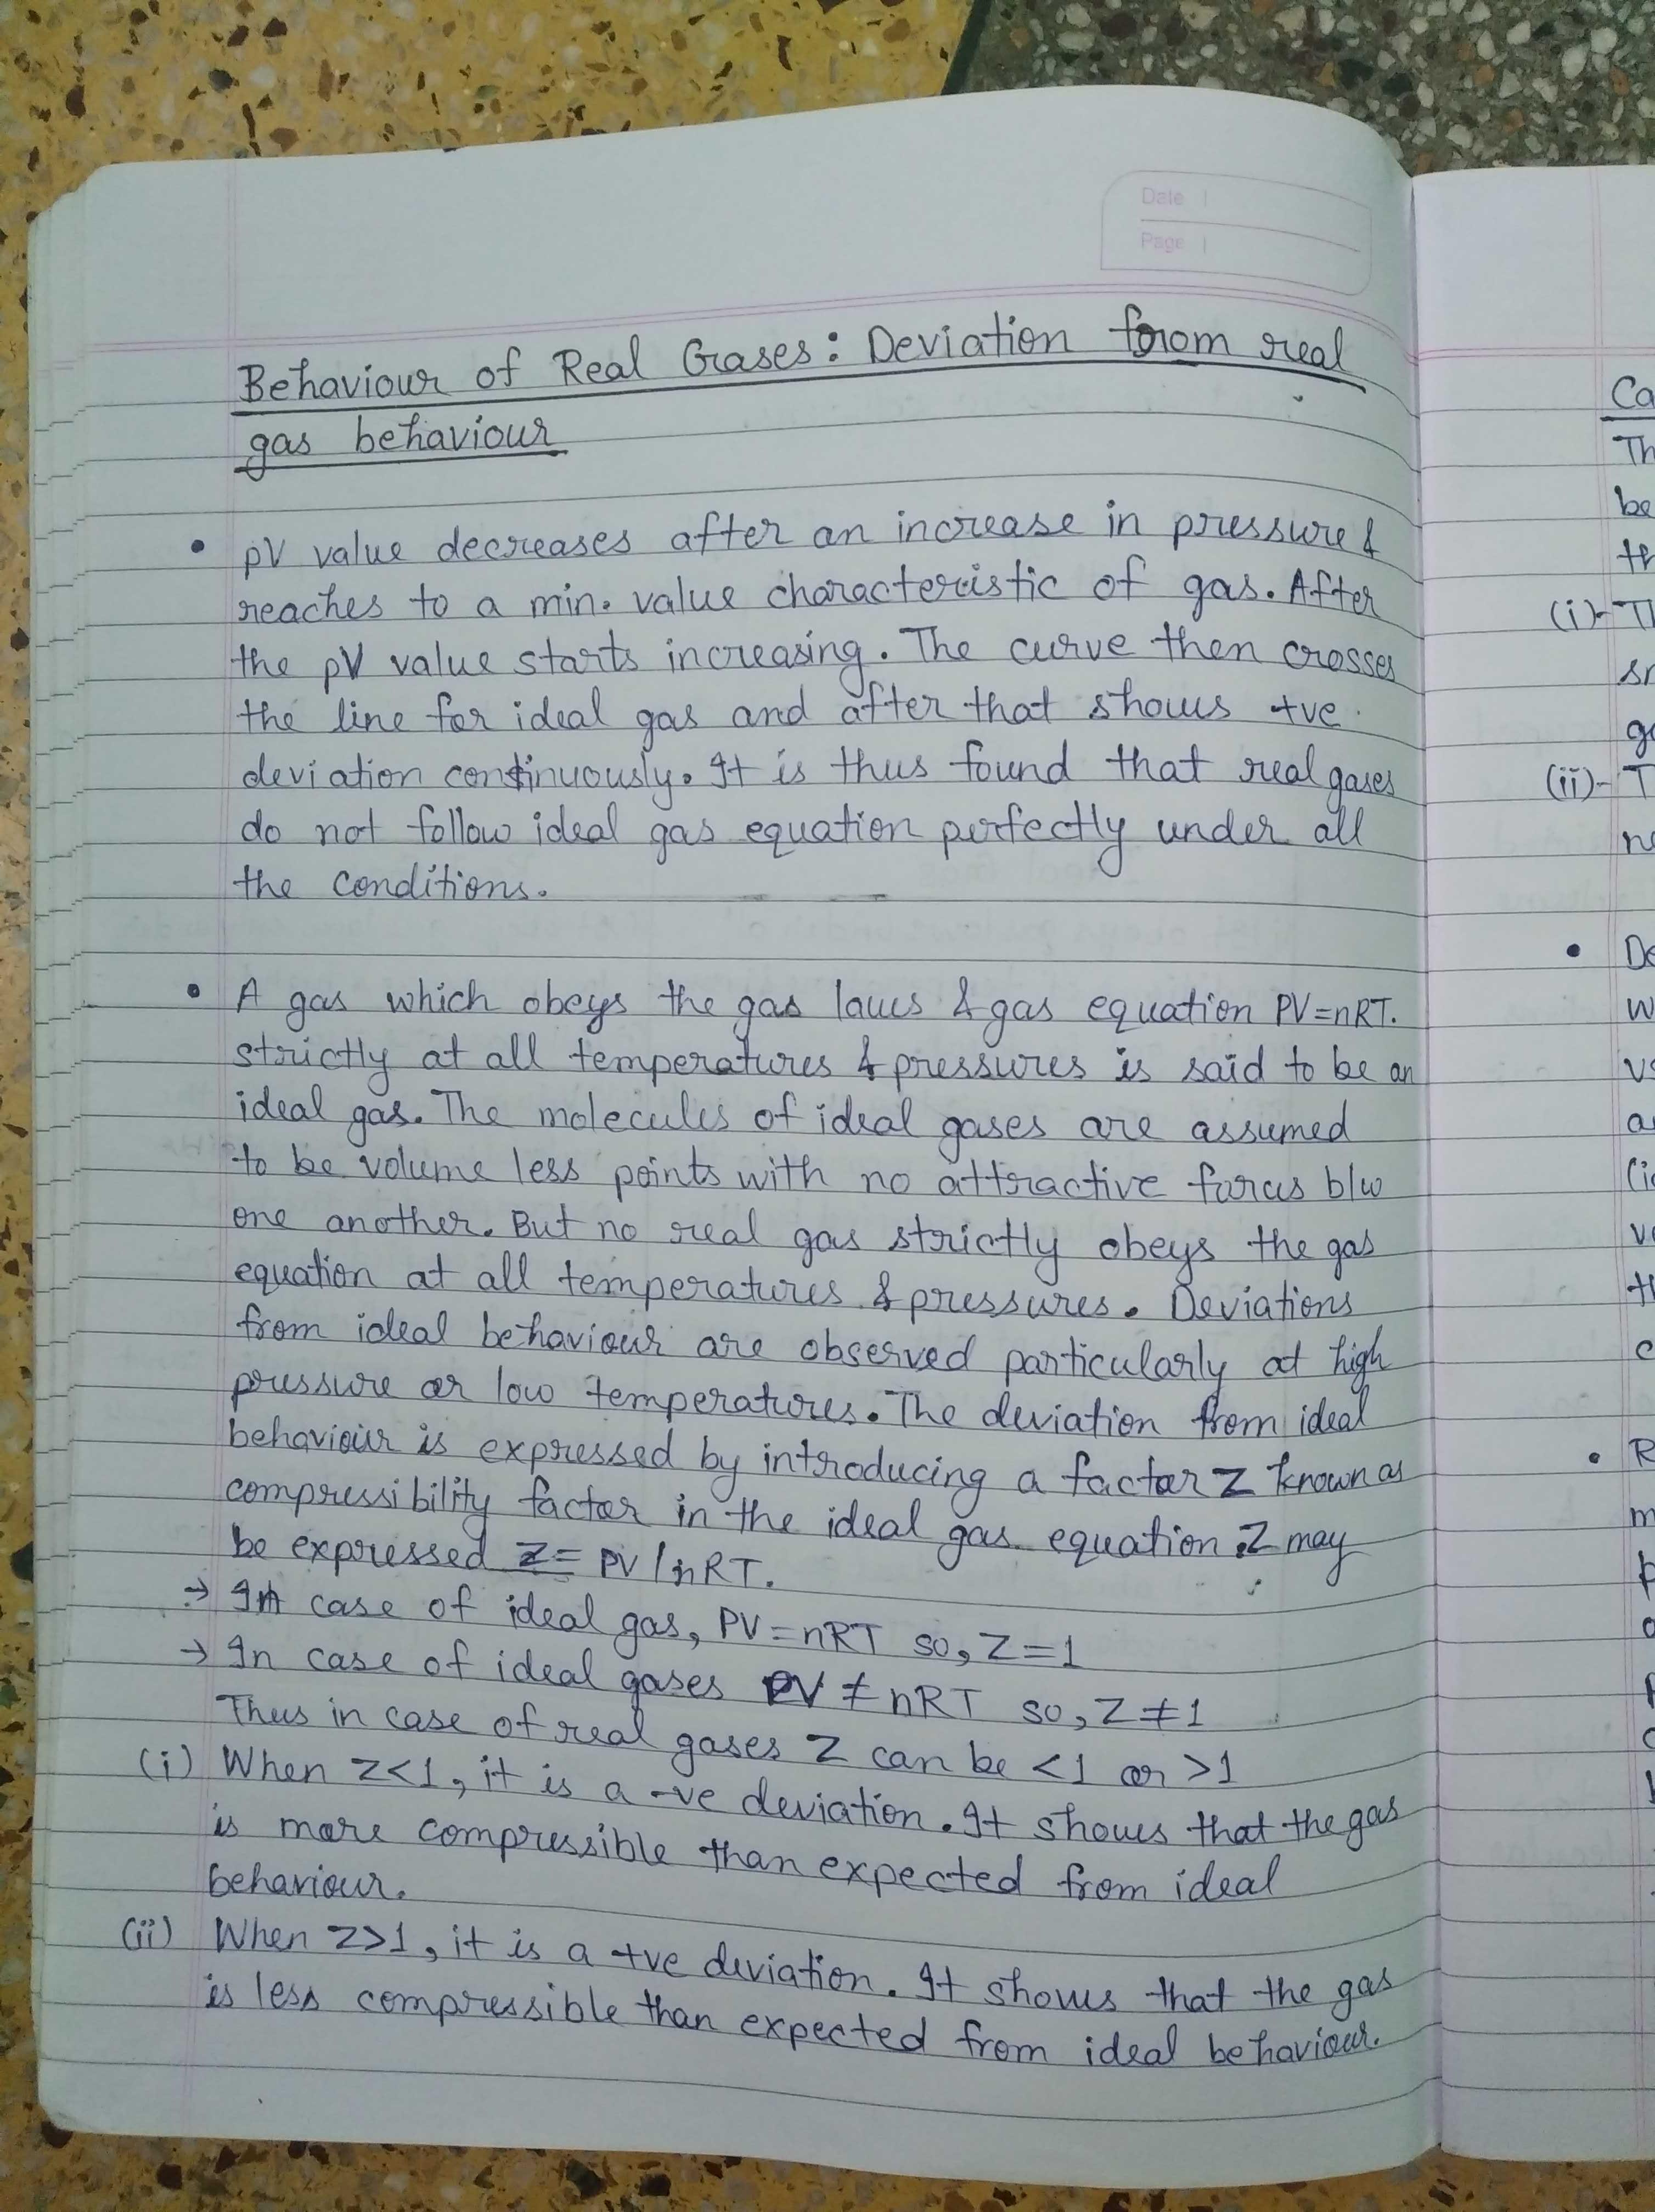 Date
Page
Behaviour of Real Gases: Deviation from real
gas behaviour
• pV value decreases after an increase in pressure &
reaches to a min. value characteristic of gas. After
the pV value starts increasing. The curve then crosses
the line for ideal gas and after that shows +ve
deviation continuously. It is thus found that real gases
do not follow ideal gas equation perfectly under all
the conditions.
• A gas which obeys the gas laws & gas equation PV=nRT.
strictly at all temperatures & pressures is said to be an
ideal gas. The molecules of ideal gases are assumed
to be volume less points with no attractive forces b/w
one another. But no real gas strictly obeys the gas
equation at all temperatures & pressures. Deviations
from ideal behaviour are observed particularly at high
pressure or low temperatures. The deviation from ideal
behaviour is expressed by introducing a factor Z known as
compressibility factor in the ideal gas equation. Z may
be expressed Z= PV/nRT.
→ In case of ideal gas, PV=nRT so, Z=1
→ In case of ideal gases PV≠nRT so, Z≠1
Thus in case of real gases Z can be <1 or >1
(i) When Z<1, it is a -ve deviation. It shows that the gas
is more compressible than expected from ideal
behaviour.
(ii) When Z>1, it is a +ve deviation. It shows that the gas
is less compressible than expected from ideal behaviour.
Ca
Th
be
th
(i)- Th
(ii)- T
• De
• R